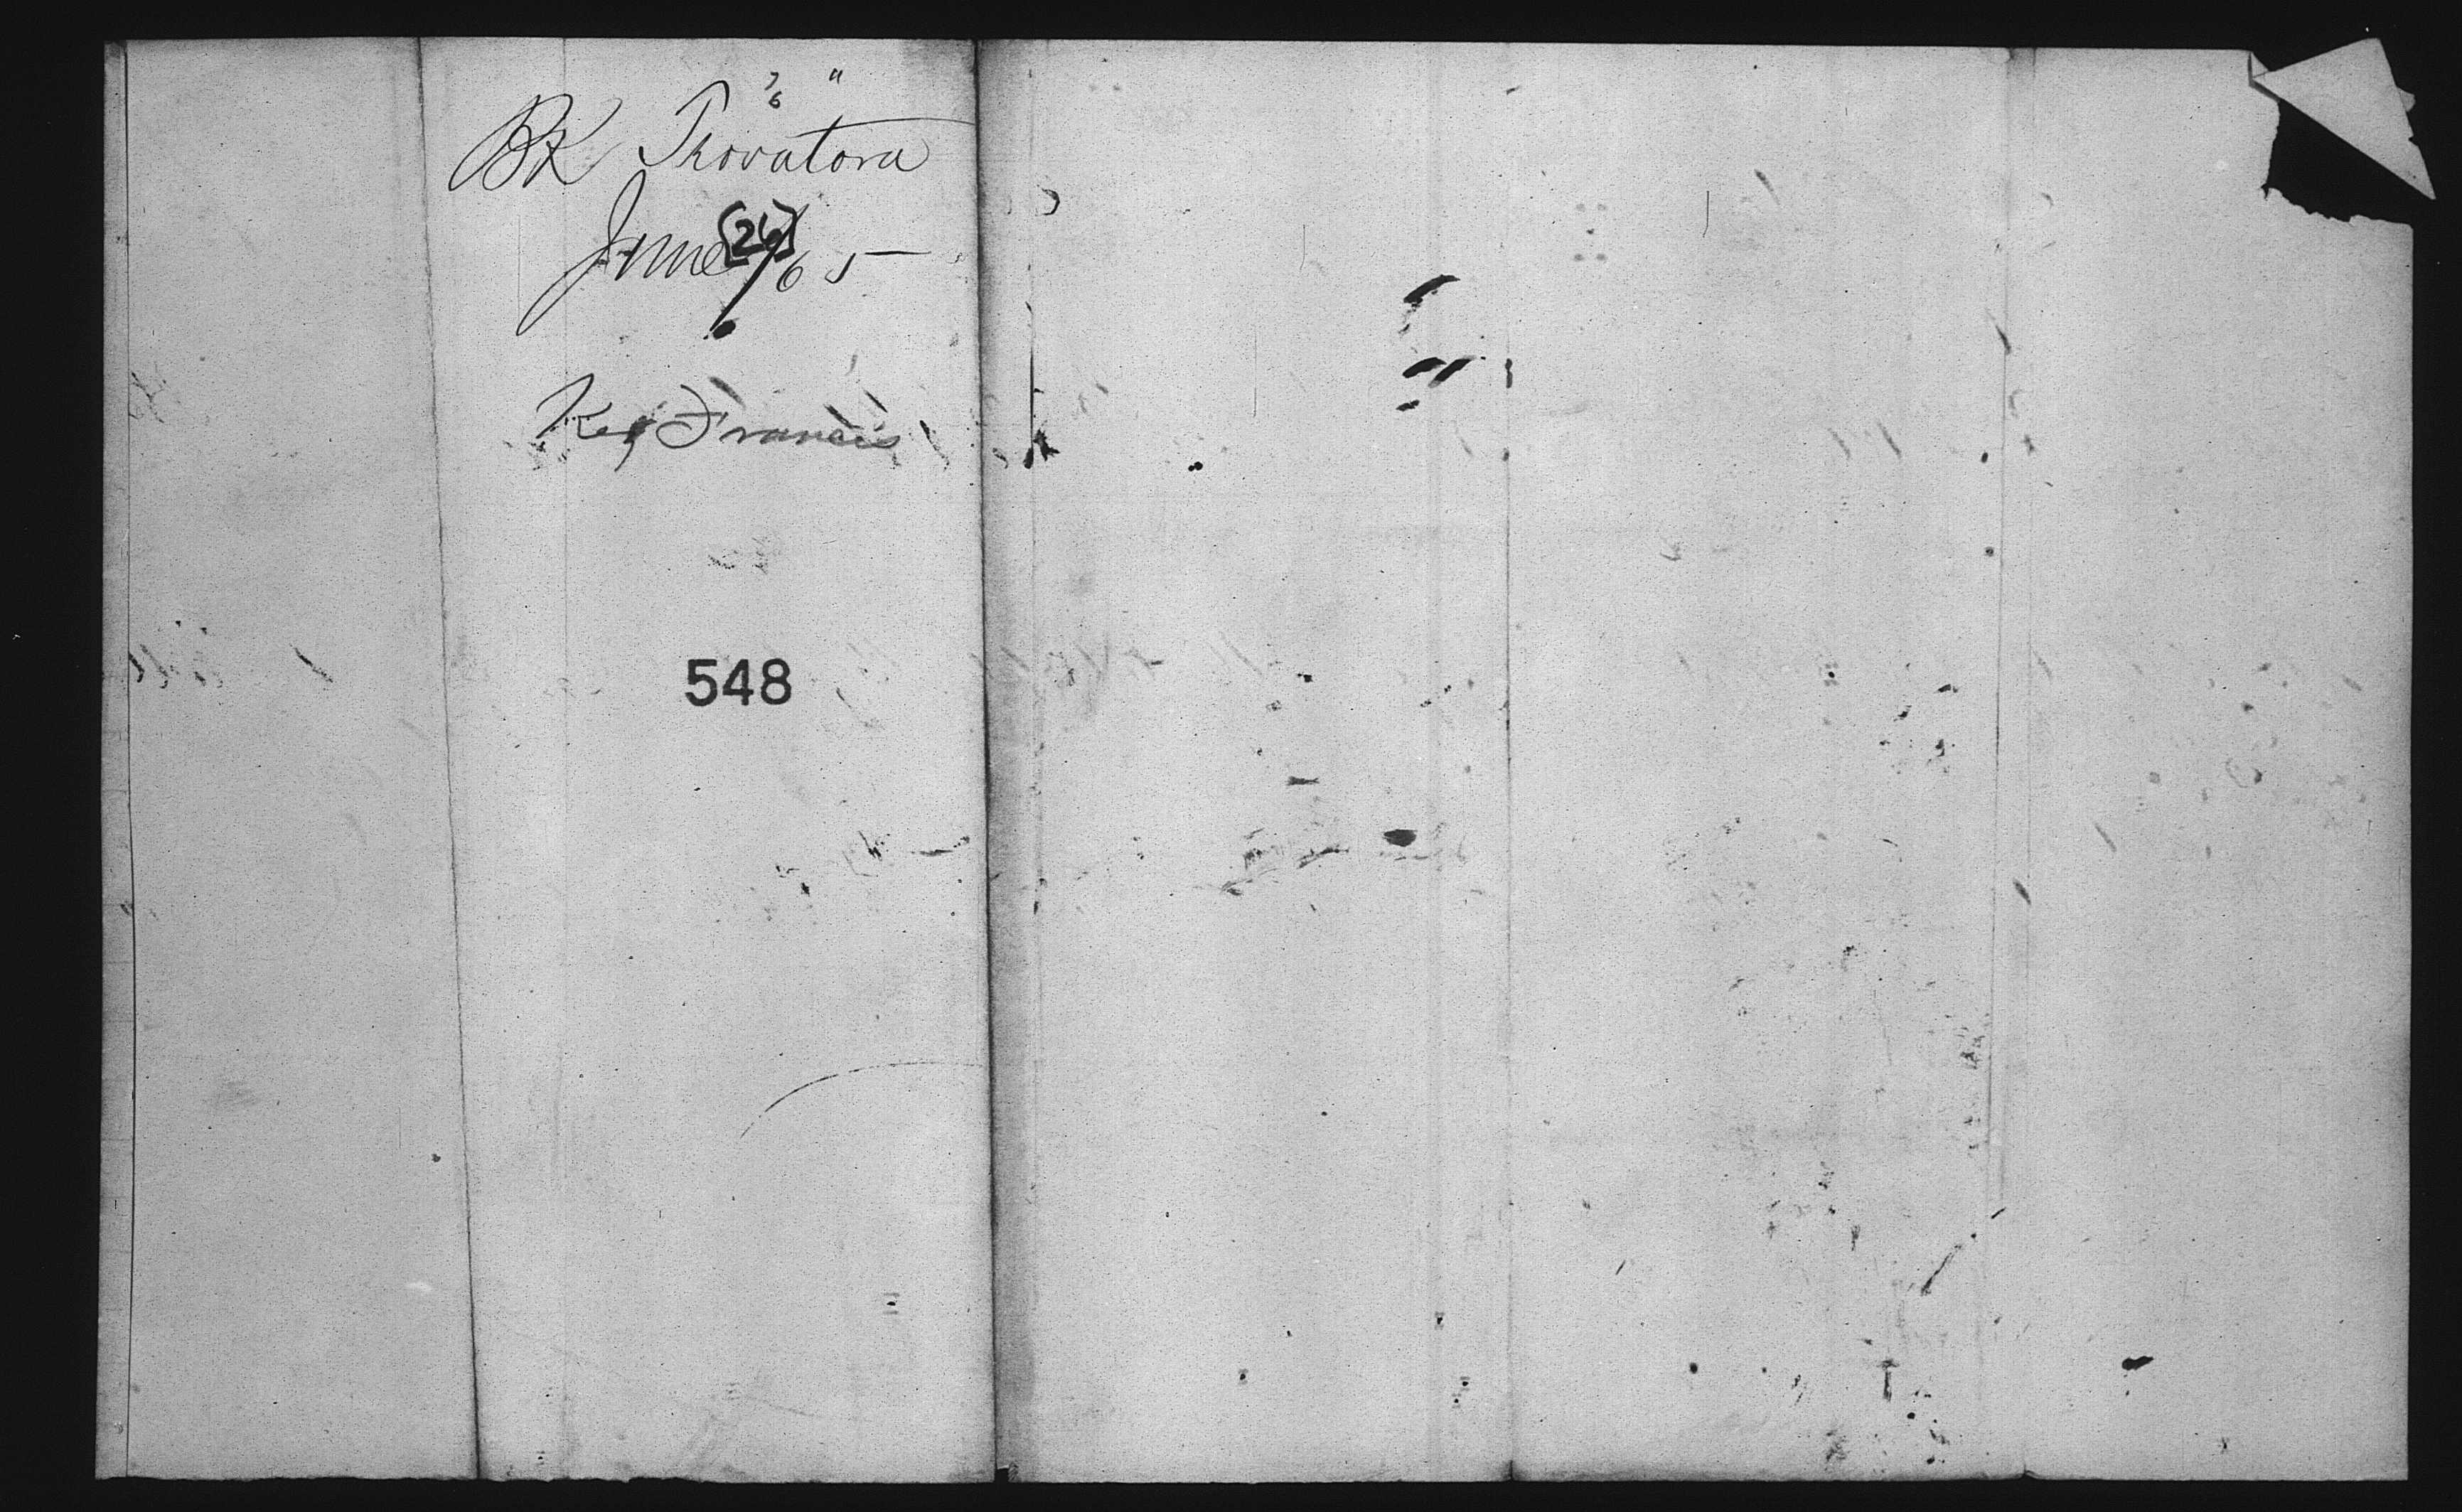 7/6 "
Bk Trovatora
June [26]/65
Key Francis
548